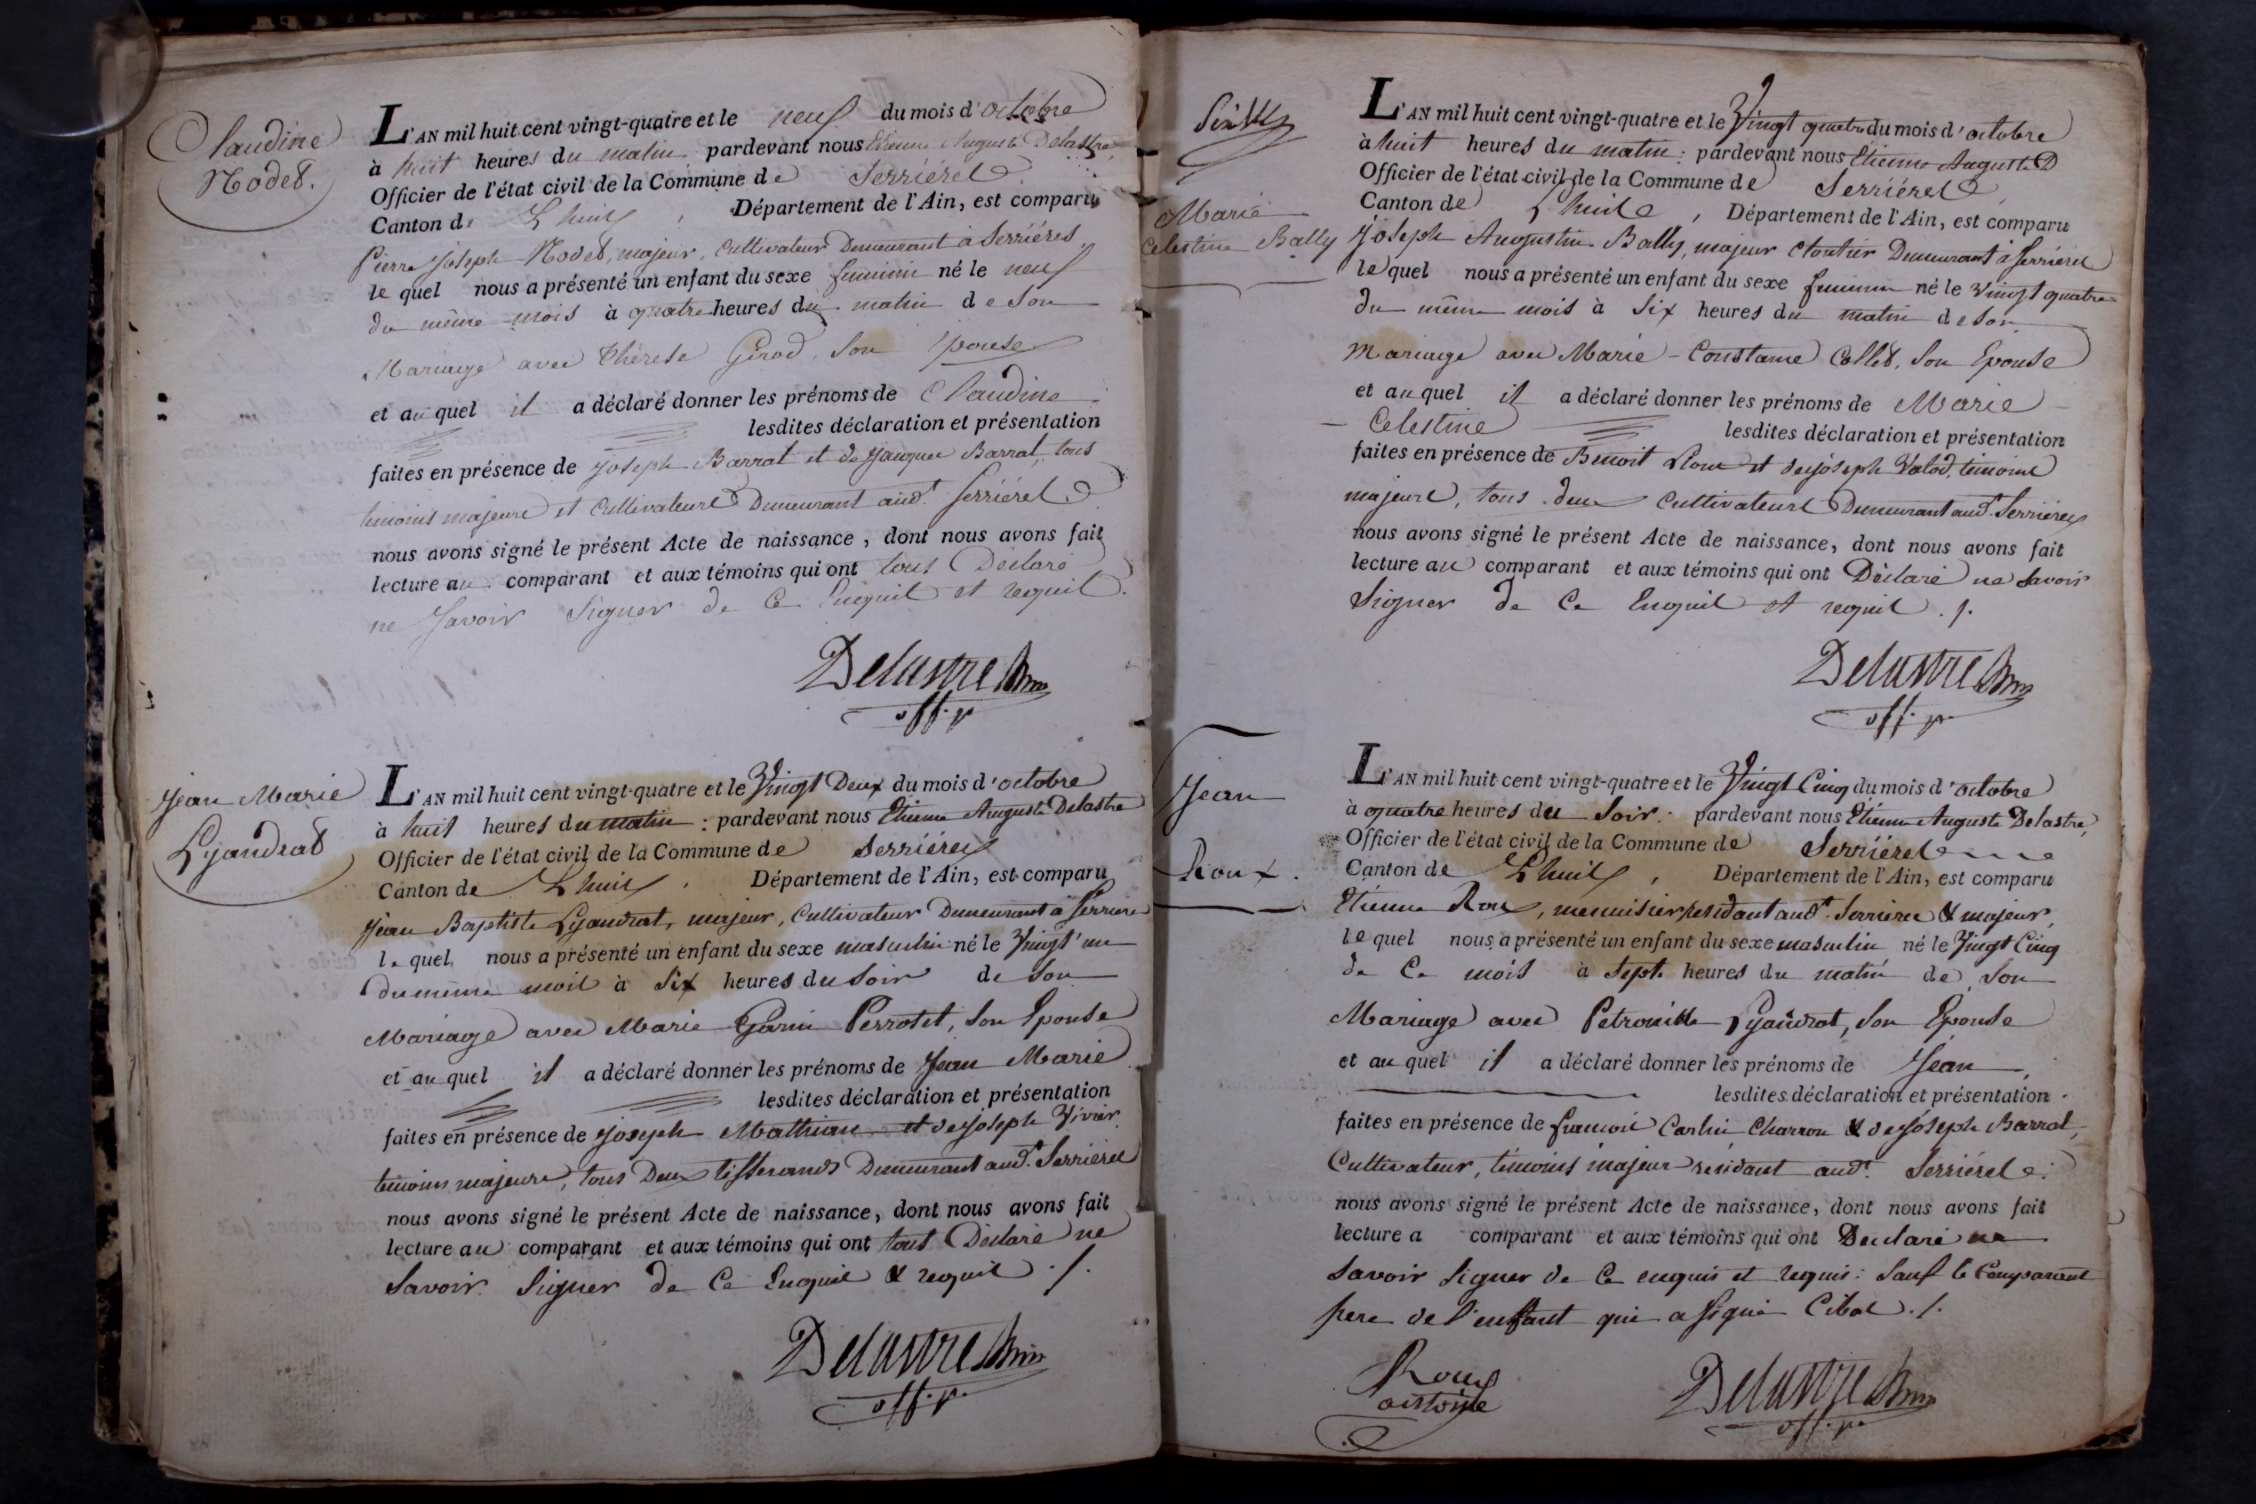 Claudine
Nodet.
L'AN mil huit cent vingt-quatre et le neuf du mois d'octobre
à huit heures du matin pardevant nous Etienne Auguste Delastre,
Officier de l'état civil de la Commune de Serriéres
Canton de Lhuis, Département de l'Ain, est comparu
Pierre Joseph Nodet, majeur, Cultivateur Demeurant à Serriéres
le quel nous a présenté un enfant du sexe feminin né le neuf
du même mois à quatre heures du matin de son
Mariage avec Thérese Girod, son Epouse
et au quel il a déclaré donner les prénoms de Claudine
lesdites déclaration et présentation
faites en présence de Joseph Barrat et de Jacques Barrat, tous
temoins majeurs et Cultivateurs Demeurant aud.t Serriéres
nous avons signé le présent Acte de naissance, dont nous avons fait
lecture au comparant et aux témoins qui ont tous Déclaré
ne Savoir Signer de Ce Enquis et requis.
Delastre
off. p.
Jean Marie
Lyaudrat
L'AN mil huit cent vingt-quatre et le Vingt Deux du mois d'octobre
à huit heures du matin : pardevant nous Etienne Auguste Delastre
Officier de l'état civil de la Commune de Serriéres
Canton de Lhuis, Département de l'Ain, est comparu
Jean Baptiste Lyaudrat, majeur, Cultivateur Demeurant à Serriere
le quel nous a présenté un enfant du sexe masculin né le Vingt un
du même mois à Six heures du Soir de Son
Mariage avec Marie Garin Perrotet, Son Epouse
et au quel il a déclaré donner les prénoms de Jean Marie
lesdites déclaration et présentation
faites en présence de Joseph Mathian et de Joseph Vivier
temoins majeurs, tous Deux tisserands Demeurant aud.t Serriéres
nous avons signé le présent Acte de naissance, dont nous avons fait
lecture au comparant et aux témoins qui ont tous Déclaré ne
Savoir Signer de Ce Enquis & requis ./.
Delastre
off. p.
Marie
Celestine Bally
L'AN mil huit cent vingt-quatre et le Vingt quatre du mois d'octobre
à huit heures du matin : pardevant nous Etienne Auguste D
Officier de l'état civil de la Commune de Serriéres
Canton de Lhuis, Département de l'Ain, est comparu
Joseph Augustin Bally, majeur Cloutier Demeurant à Serriéres
le quel nous a présenté un enfant du sexe feminin né le Vingt quatre
du même mois à Six heures du matin de Son
Mariage avec Marie-Constance Collet, Son Epouse
et au quel il a déclaré donner les prénoms de Marie
Celestine lesdites déclaration et présentation
faites en présence de Benoit Roux et de Joseph Valod, témoins
majeurs, tous deux Cultivateurs Demeurant aud.t Serriéres
nous avons signé le présent Acte de naissance, dont nous avons fait
lecture au comparant et aux témoins qui ont Déclaré ne Savoir
Signer de Ce Enquis et requis ./.
Delastre
off. p.
Jean
Roux.
L'AN mil huit cent vingt-quatre et le Vingt Cinq du mois d'octobre
à quatre heures du Soir : pardevant nous Etienne Auguste Delastre,
Officier de l'état civil de la Commune de Serriéres
Canton de Lhuis, Département de l'Ain, est comparu
Etienne Roux, menuisier residant aud.t Serriéres & majeur,
le quel nous a présenté un enfant du sexe masculin né le Vingt Cinq
de Ce mois à Sept heures du matin de Son
Mariage avec Petronille Lyaudrat, Son Epouse
et au quel il a déclaré donner les prénoms de Jean
lesdites déclaration et présentation
faites en présence de francois Carlin Charron & de Joseph Barrat,
Cultivateur, témoins majeur residant aud.t Serriéres
nous avons signé le présent Acte de naissance, dont nous avons fait
lecture a comparant et aux témoins qui ont Declaré ne
Savoir Signer de Ce enquis et requis : Sauf le Comparant
pere de l'enfant qui a Signé Cibas ./.
Roux
Delastre
off. p.